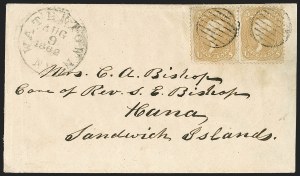 WATERTOWN
AUG
9
Mrs. C. A. Bishop
Care of Rev. S. E. Bishop
Hana,
Sandwich Islands.